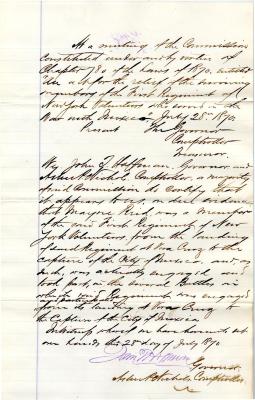 At a meeting of the Commission
Constituted under and by virtue of
Chapter 780 of the Laws of 1870, entitled
"An act for the relief of the surviving
members of the First Regiment of
New York Volunteers who served in the
War with Mexico, July 25th 1870,
Present The Governor
Comptroller
Treasurer
We, John T. Hoffman Governor and
Asher P. Nichols Comptroller, a majority
of said Commission do Certify that
it appears to us on due evidence
that Mayne Reid, was a member
of the said First Regiment of New
York Volunteers from the landing
of said Regiment at Vera Cruz to the
capture of the City of Mexico, and, as
such, was actually engaged and
took part in the several Battles in
which said Regiment was engaged
after the landing at Vera Cruz to
the Capture of the City of Mexico
In testimony whereof we have hereunto set
our hands this 25 day of July 1870
Governor
Asher P. Nichols Comptroller